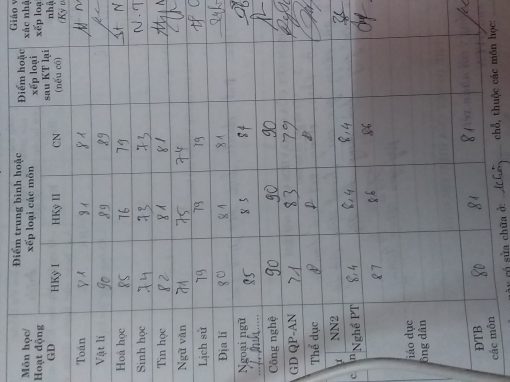 Môn học/ Hoạt động GD
Điểm trung bình hoặc xếp loại các môn
HKỳ I HKỳ II CN
Điểm hoặc xếp loại sau KT lại (nếu có)
Giáo v
xác nhậ
xếp loại
Toán 81 81
Vật lí 90 89 89
Hoá học 85 76 79
Sinh học 74 73 73
Tin học 82 81 81
Ngữ văn 71 75 74
Lịch sử 79 79 79
Địa lí 80 81 81
Ngoại ngữ 85 83 84
Công nghệ 90 90 90
GD QP-AN 71 83 79
Thể dục Đ Đ Đ
NN2
Nghề PT 8,4 8,4 8,4
iáo dục
ông dân 87 86 86
ĐTB các môn 80 81 81
có sửa chữa ở: chỗ, thuộc các môn học: